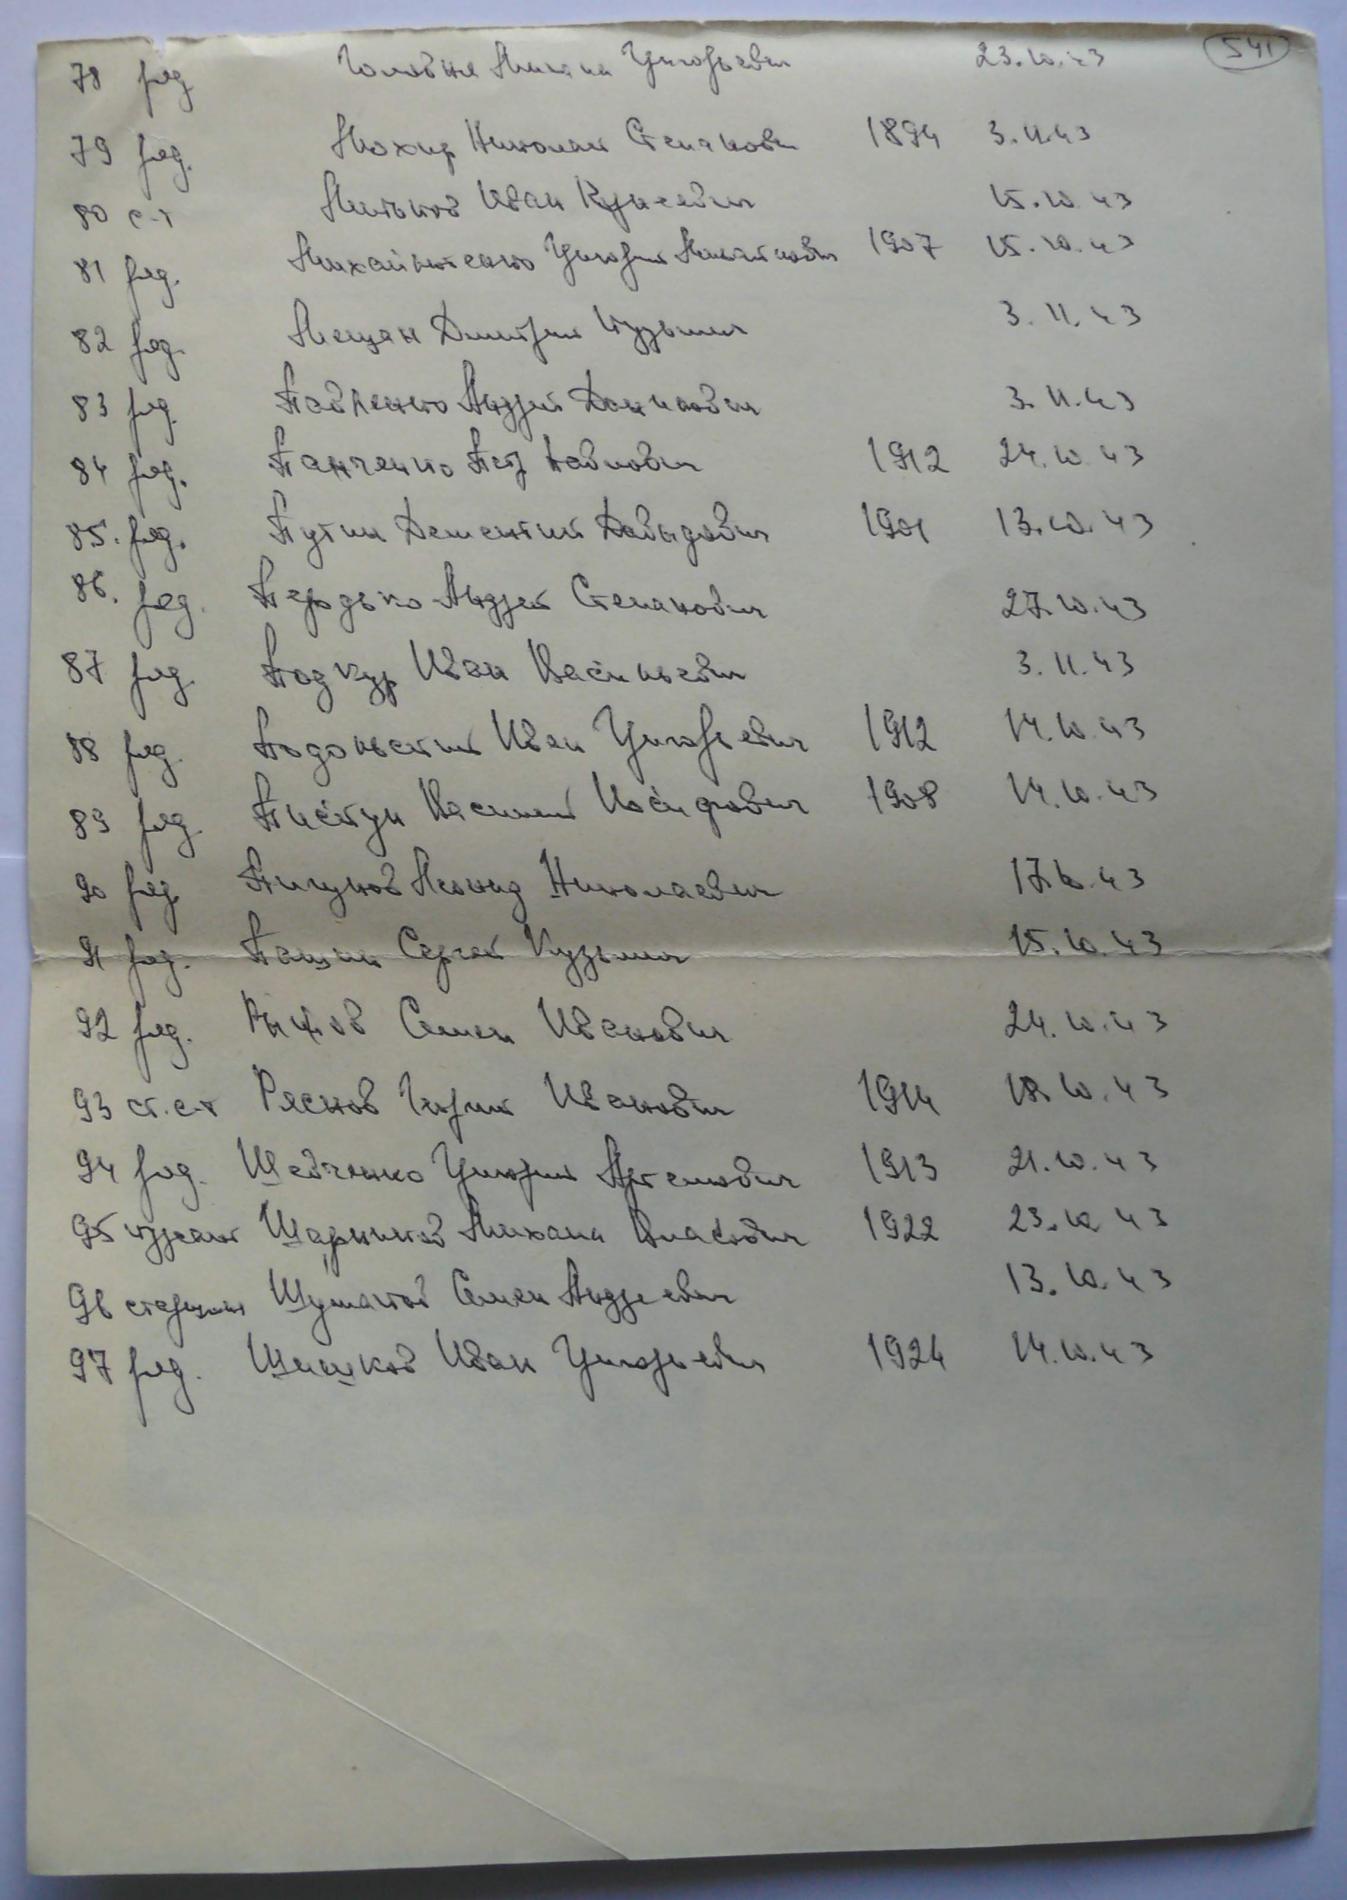 541
78 ряд Головня Никита Григорьевич 23.10.43
79 ряд. Мохир Николай Степанович 1894 3.11.43
80 с-т Миньков Иван 15.10.43
81 ряд. Григорий 1907 15.10.43
82 ряд. Мещан Дмитрий Кузьмич 3.11.43
83 ряд. Павленко Андрей Данилович 3.11.43
84 ряд. Панченко Петр Павлович 1912 24.10.43
85. ряд. Путин Дементий Давыдович 1901 13.10.43
86. ряд. Андрей Степанович 27.10.43
87 ряд. Подкур Иван Васильевич 3.11.43
88 ряд. Подольский Иван Григорьевич 1912 14.10.43
89 ряд. Пистун Василий Иосифович 1908 14.10.43
90 ряд Леонид Николаевич 17.10.43
91 ряд. Пащин Сергей Кузьмич 15.10.43
92 ряд. Рыжов Семен Иванович 24.10.43
93 ст. с-т Ряснов Иванович 1914 18.10.43
94 ряд. Шевченко Григорий Артемович 1913 21.10.43
95 курсант Михаил Власович 1922 23.10.43
96 старшина Шумаков Семен Андреевич 13.10.43
97 ряд. Шишков Иван Григорьевич 1924 14.10.43